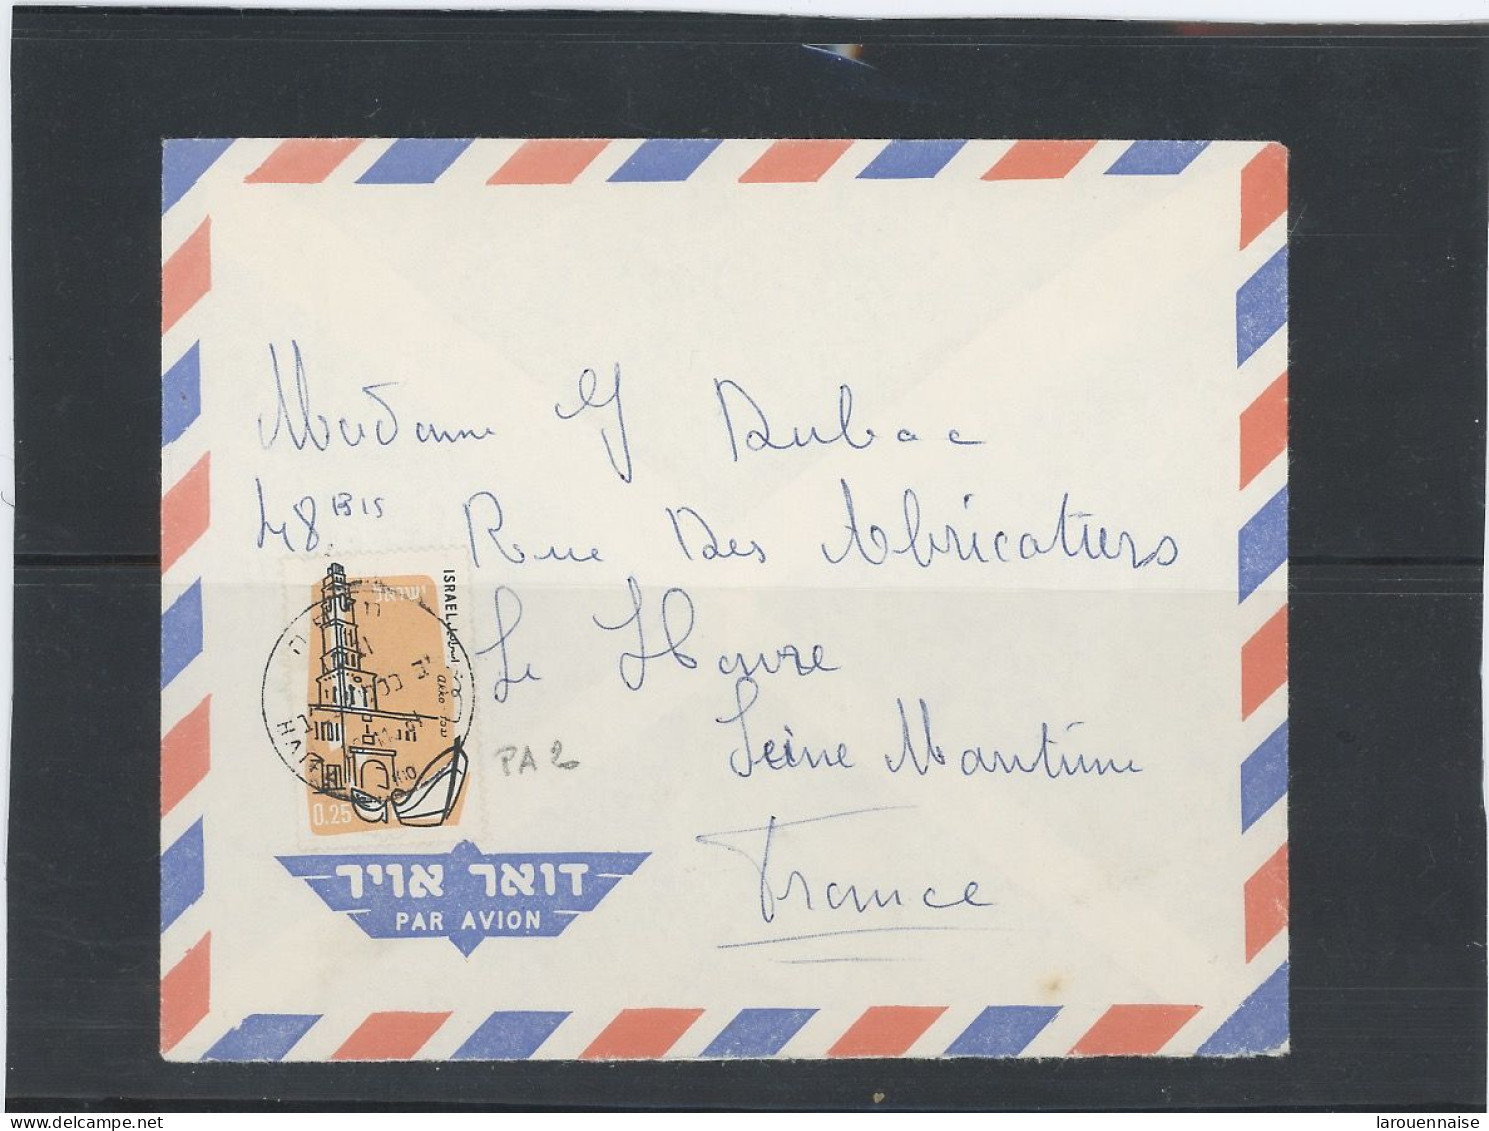 Madame G Dubac
48 BIS Rue Des Abricatiers
Le Havre
Seine Maritime
France
ISRAEL
ישראל
akko
0.25
HAIFA
PA 2
דואר אויר
PAR AVION
delcampe.net
larouennaise